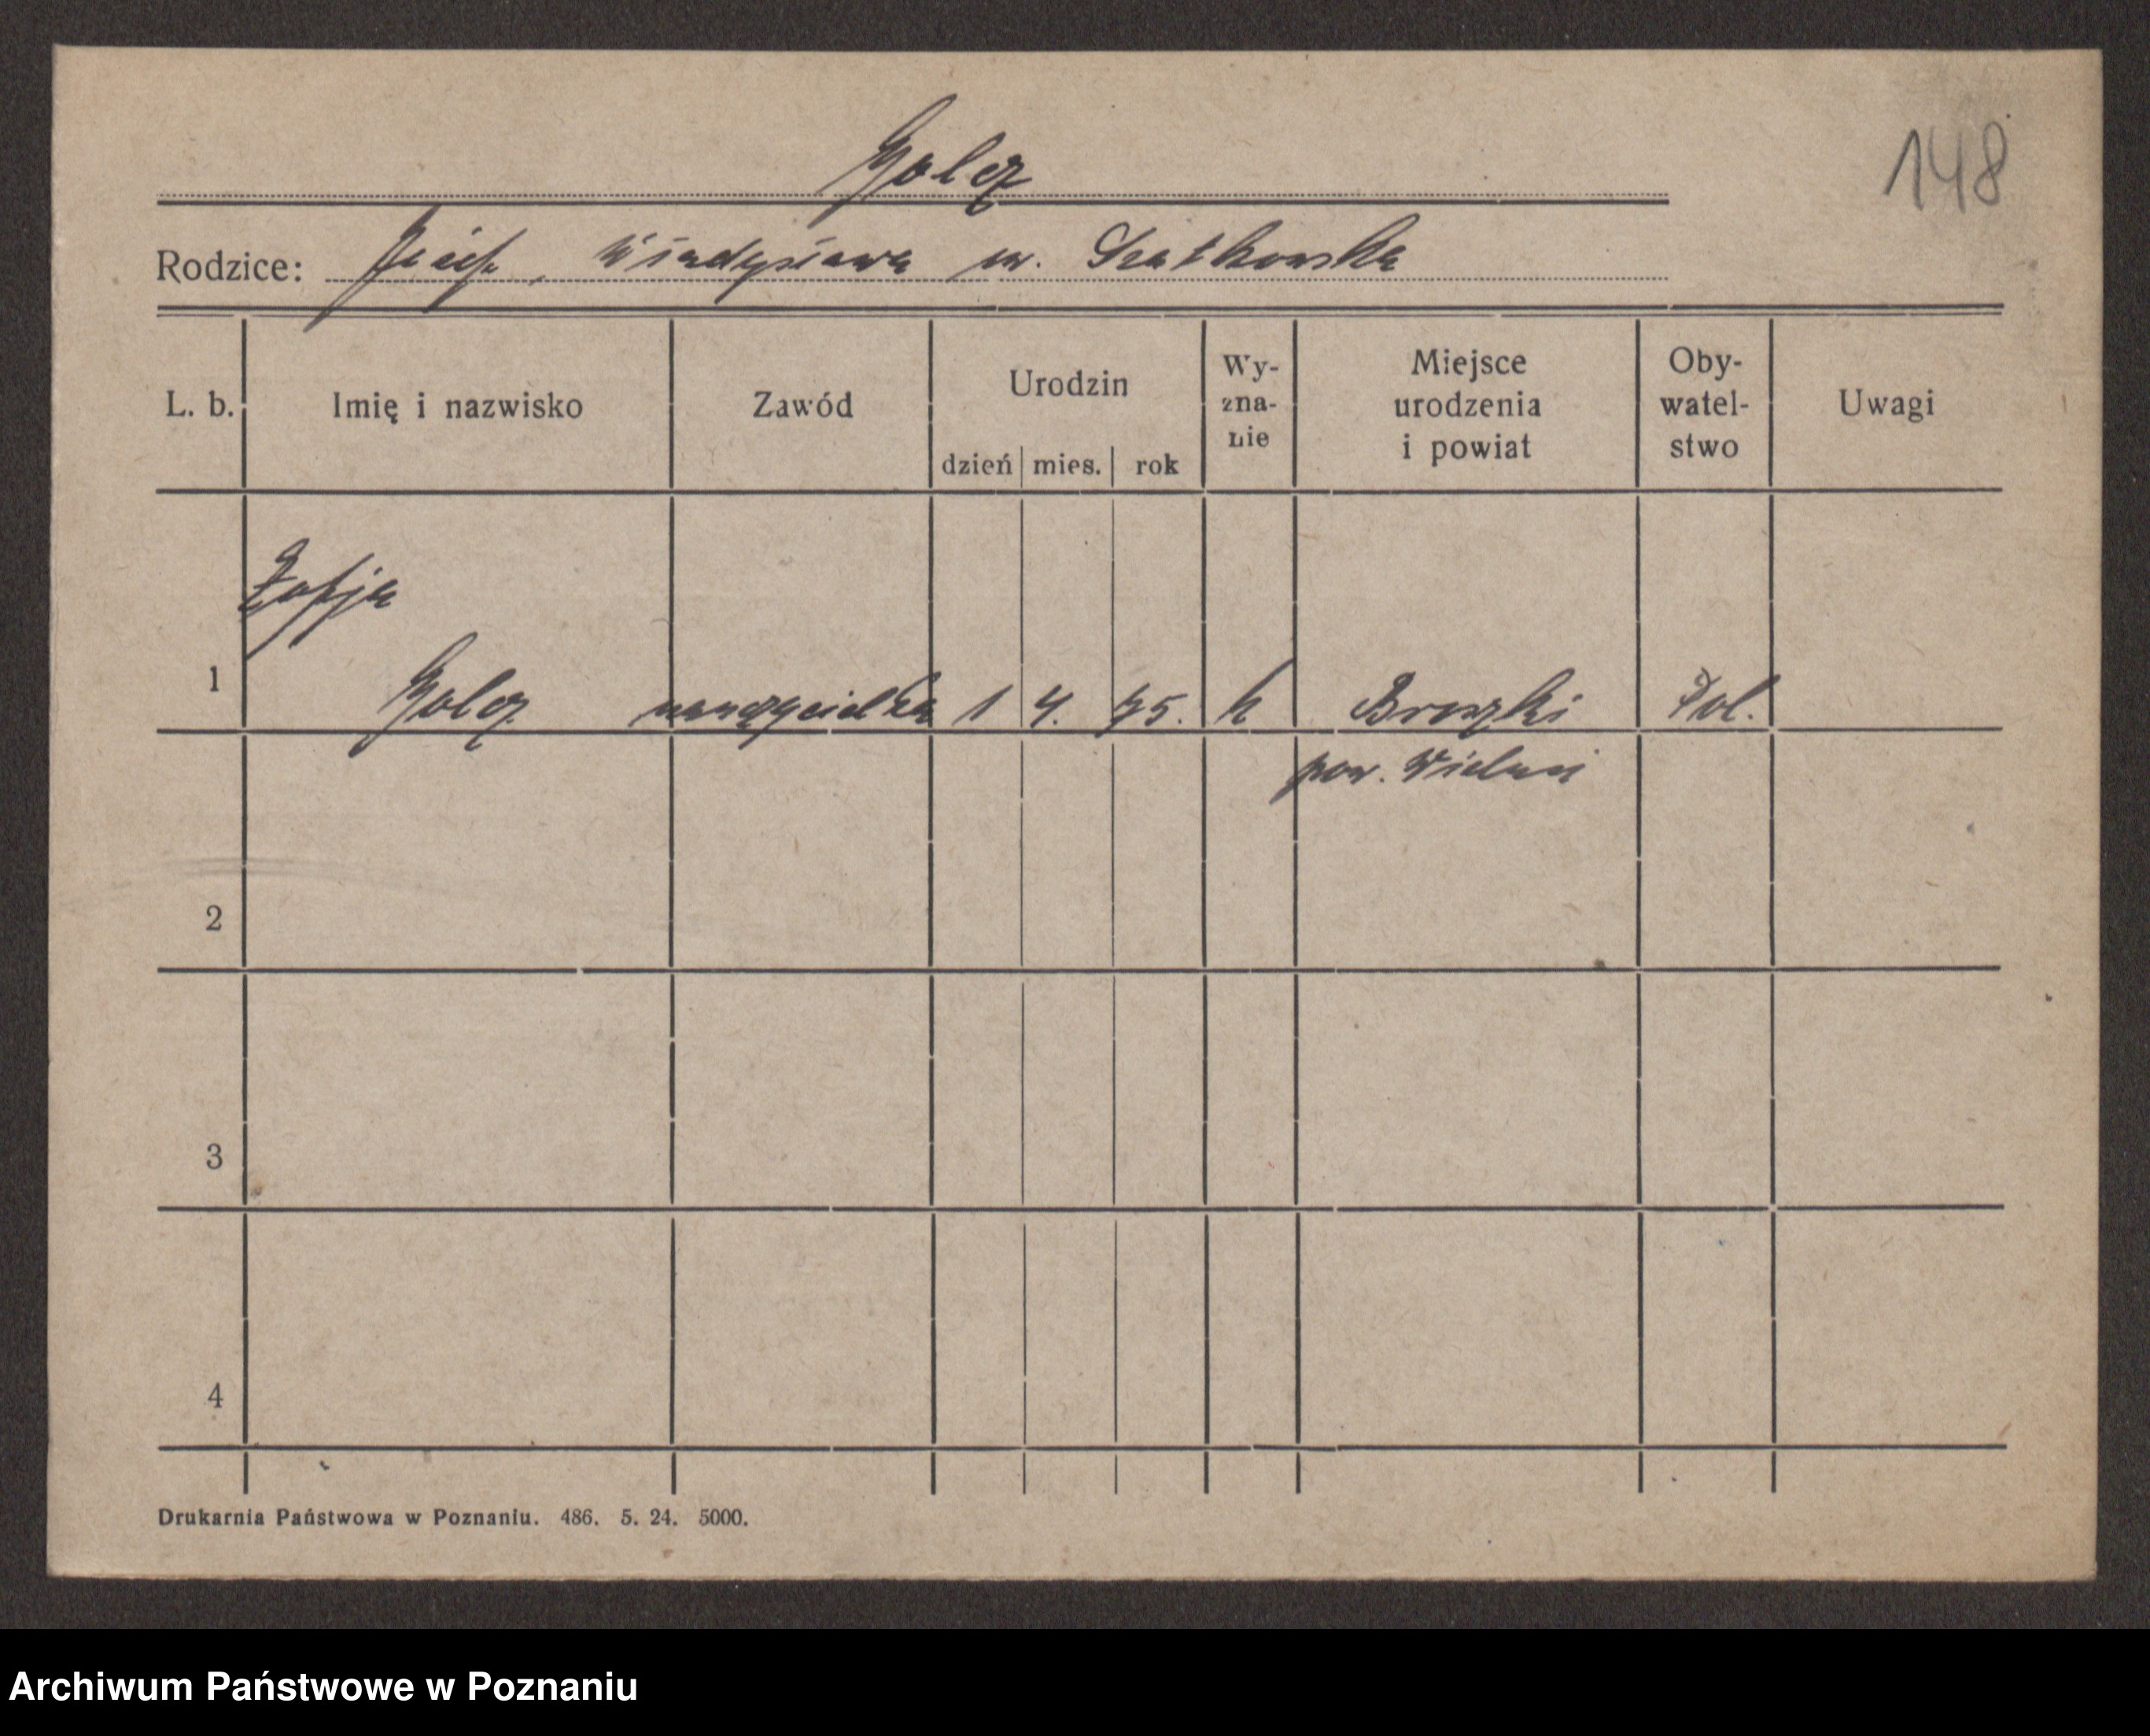 Golcz
148
Rodzice: Józef, Władysława ur. Szatkowska
L. b.
Imię i nazwisko
Zawód
Urodzin
dzień mies. rok
Wy-
zna-
nie
Miejsce
urodzenia
i powiat
Oby-
watel-
stwo
Uwagi
Zofja
1 Golcz nauczycielka 1 4. 75. k Pol.
pow. Wieluń
2
3
4
Drukarnia Państwowa w Poznaniu. 486. 5. 24. 5000.
Archiwum Państwowe w Poznaniu